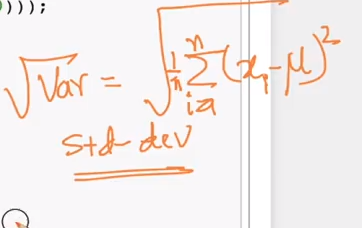 ))));
√Var = √(1/n ∑ⁿᵢ₌₁ (xᵢ - μ)²)
std dev